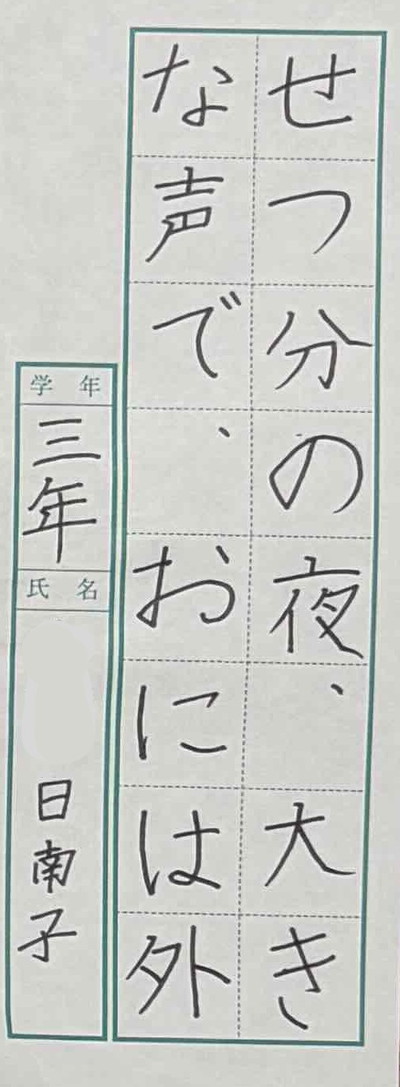 せつ分の夜、大き
な声で、おには外
学年
三年
氏名
日南子